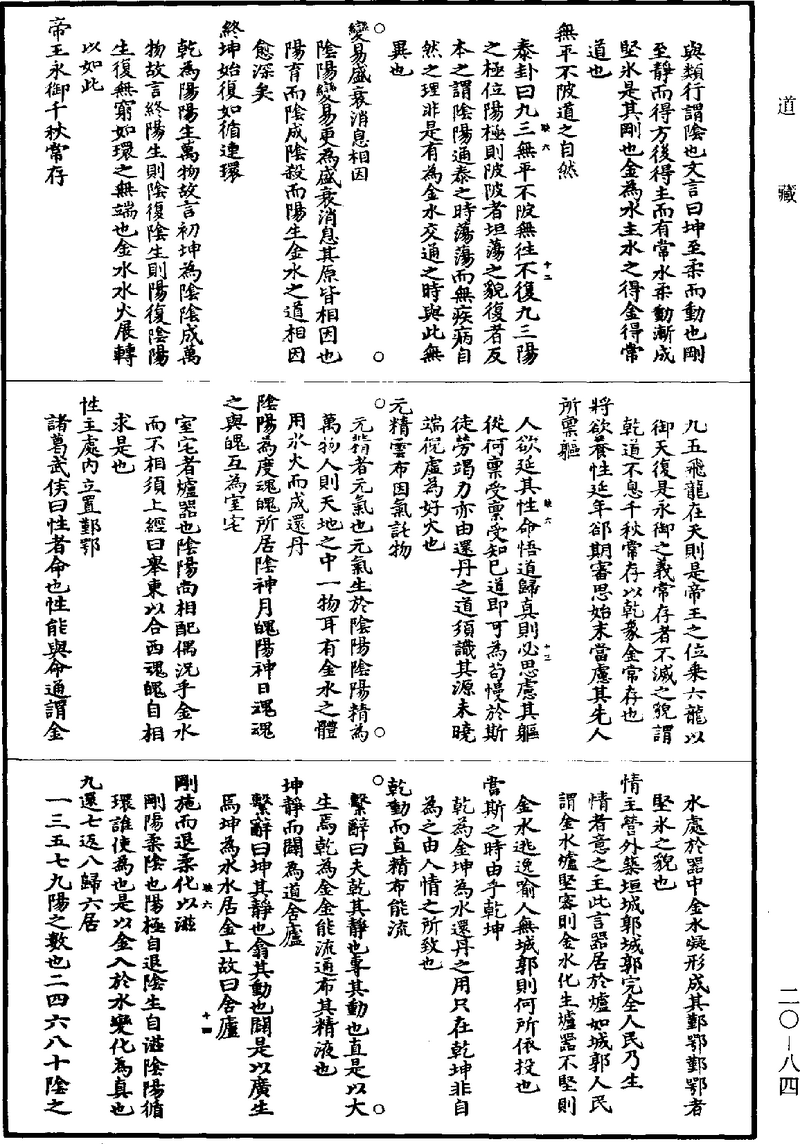 道藏
與類行謂陰也文言曰坤至柔而動也剛
至靜而得方後得主而有常水柔動漸成
堅氷是其剛也金為水主水之得金得常
道也
無平不陂道之自然
泰卦曰九三無平不陂無往不復九三陽
之極位陽極則陂陂者坦蕩之貌復者反
本之謂陰陽通泰之時蕩蕩而無疾病自
然之理非是有為金水交通之時與此無
異也
變易盛衰消息相因
陰陽變易更為盛衰消息其原皆相因也
陽育而陰成陰殺而陽生金水之道相因
愈深矣
終坤始復如循連環
乾為陽陽生萬物故言初坤為陰陰成萬
物故言終陽生則陰復陰生則陽復陰陽
生復無窮如環之無端也金水水火展轉
以如此
帝王永御千秋常存
九五飛龍在天則是帝王之位乗六龍以
御天復是永御之義常存者不滅之貌謂
乾道不息千秋常存以乾象金常存也
將欲養性延年郤期審思始末當慮其先人
所稟軀
人欲延其性命悟道歸真則必思慮其軀
從何稟受稟受知巳道即可為苟慢於斯
徒勞竭力亦由還丹之道須識其源未曉
端倪慮為好火也
元精雲布因氣託物
元精者元氣也元氣生於陰陽陰陽精為
萬物人則天地之中一物耳有金水之體
用水火而成還丹
陰陽為度魂魄所居陰神月魄陽神日魂魂
之與魄互為室宅
室宅者爐器也陰陽尚相配偶況乎金水
而不相須上經曰舉東以合西魂魄自相
求是也
性主處內立置鄞鄂
諸葛武侯曰性者命也性能與命通謂金
水處於器中金水凝形成其鄞鄂鄞鄂者
堅氷之貌也
情主營外築垣城郭城郭完全人民乃生
情者意之主此言器居於爐如城郭人民
謂金水爐堅密則金水化生爐器不堅則
金水逃逸喻人無城郭則何所依投也
當斯之時由乎乾坤
乾為金坤為水還丹之用只在乾坤非自
為之由人情之所致也
乾動而直精布能流
繫辭曰夫乾其靜也專其動也直是以大
生焉乾為金金能流通布其精液也
坤靜而闢為道舍廬
繫辭曰坤其靜也翕其動也闢是以廣生
焉坤為水水居金上故曰舍廬
剛施而退柔化以滋
剛陽柔陰也陽極自退陰生自滋陰陽循
環誰使為也是以金入於水變化為真也
九還七返八歸六居
一三五七九陽之數也二四六八十陰之
二〇—八四